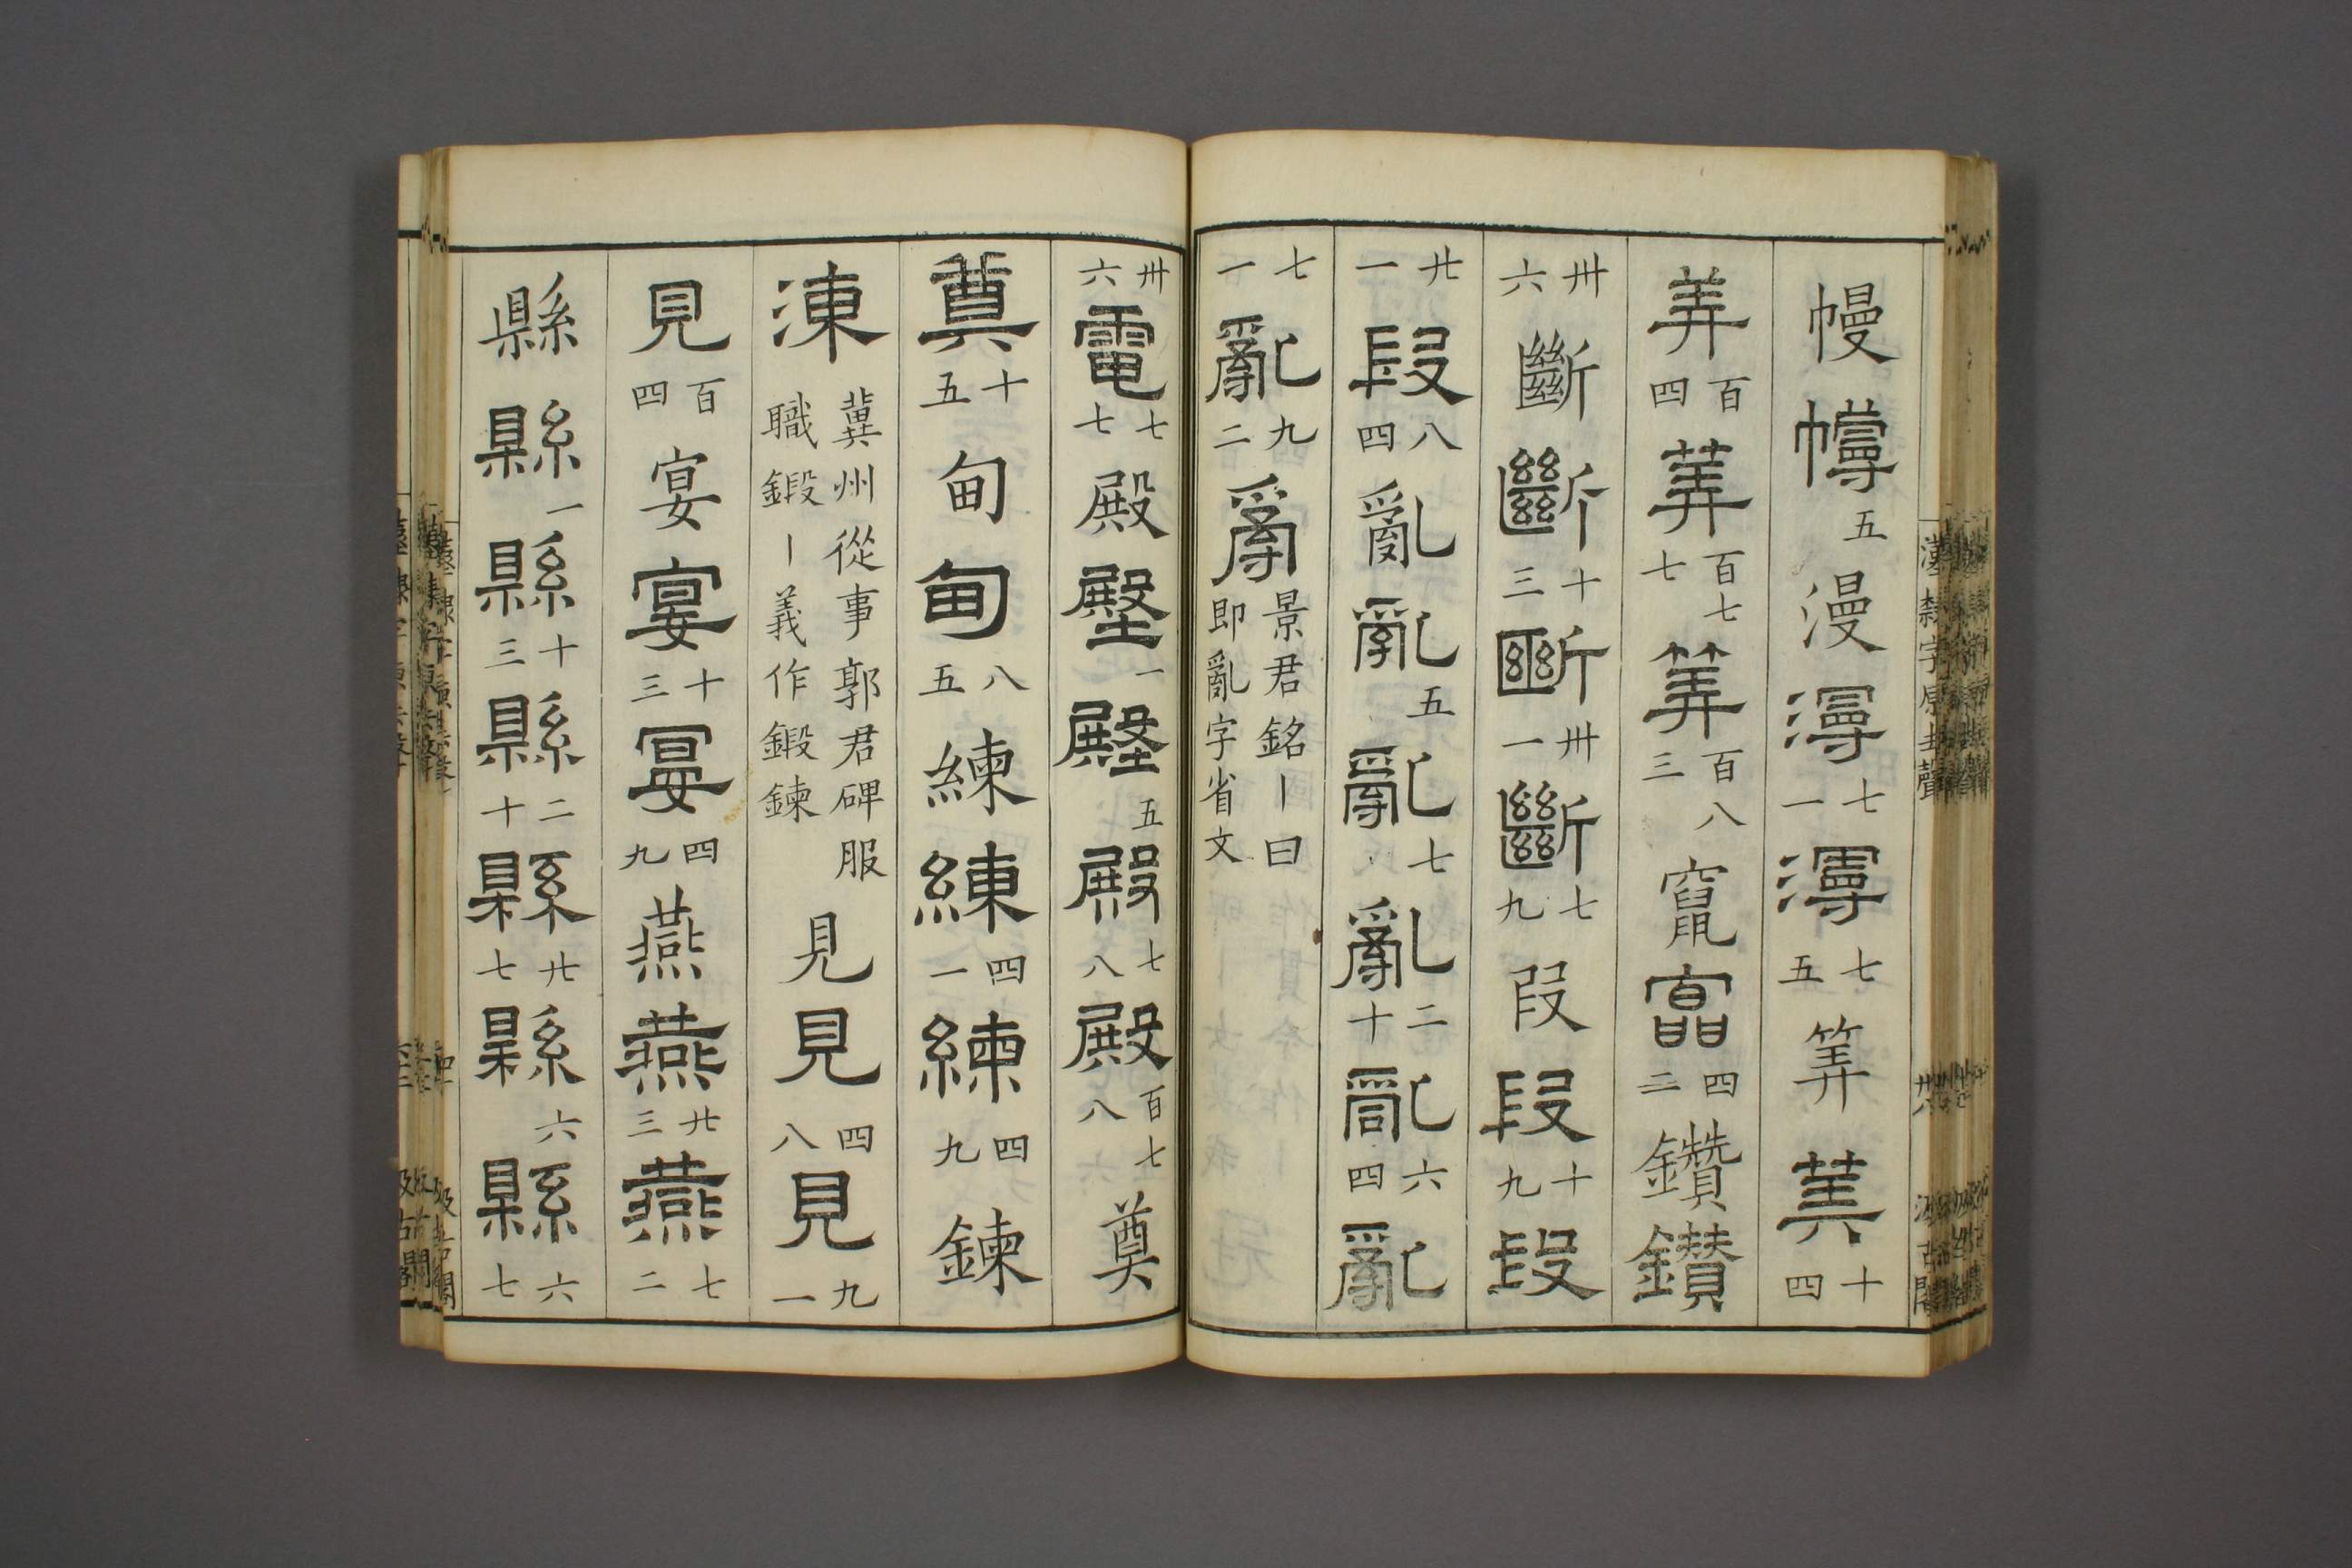 幔幔五漫漫七一漫七五筭筭十四
筭百四筭百七七筭百八三竄竄四二鑽鑽
卅六斷斷斷十三斷卅一斷七九段段十九段
廿一段八四亂亂五亂七亂二十亂六四亂
七一亂九二𤔔景君銘丨曰即亂字省文
卅六電七七殿殿一殿五殿七八殿百七八奠
奠十五甸甸八五練練四一練四九鍊
湅冀州從事郭君碑服職鍛丨義作鍛鍊見見四八見九一
見百四宴宴十三宴四九燕燕廿三燕七二
縣縣一縣十三縣二十縣廿七縣六縣六七
漢隸字原去聲
汲古閣